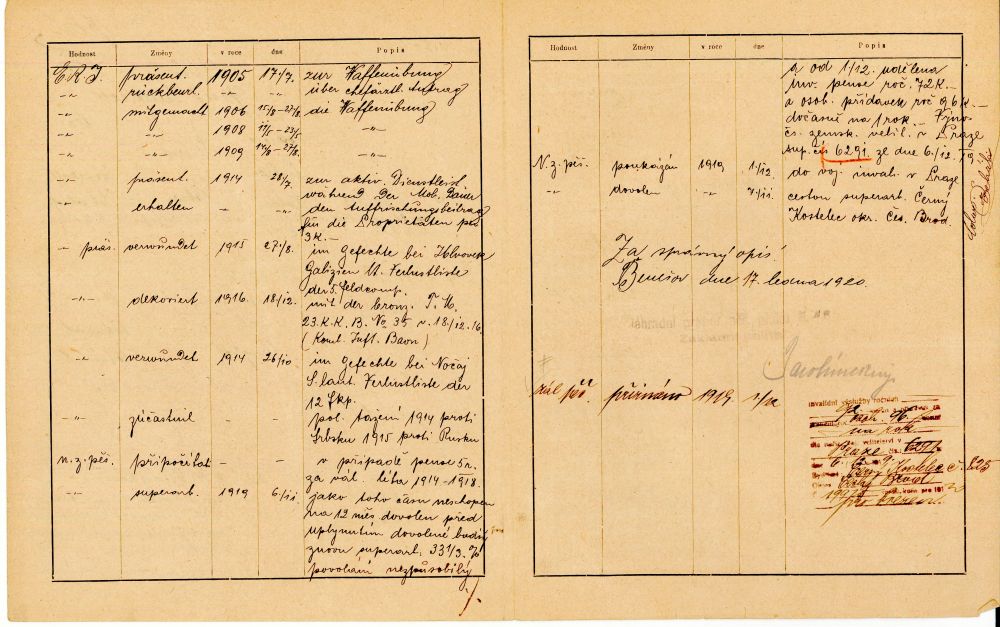 Hodnost Změny v roce dne Popis
E.R.I. präsent. 1905 17/7. zur Waffenübung
-"- rückbeurl. über chefärztl. Antrag
-"- mitgemacht 1906 15/8-27/8. die Waffenübung
-"- -"- 1908 -"-
-"- -"- 1909 14/8-27/8. -"-
-"- präsent. 1914 28/7. zur aktiv. Dienstleist
während Der Mob. Dauer
-"- erhalten - - den Auffrischungsbeitrag
für die Proprietäten per
3 K.-
- präs. verwundet 1915 27/8. im Gefechte bei
Galizien lt. Verlustliste
der 5. Feldcomp.
-"- dekoriert 1916. 18/12. mit der bronz. T. M.
23. K. K. B. No 35 v. 18/12.16
-"- verwundet 1914 26/10 im Gefechte bei Nočaj
S. laut. Verlustliste der
12 Fkp.
-"- zúčastnil pol. tažení 1914 proti
Srbsku 1915 proti Rusku
n.z.pěš. připočítati - - v případě pense 5 r.
za vál. léta 1914-1918.
-"- superarb. 1919 6/11 jako toho času neschopen
na 12 měs dovolen před
uplynutím dovolené budiž
znovu superarb. 33 1/3. %
povolání nezpůsobilý
Hodnost Změny v roce dne Popis
a od 1/12. udělena
inv. pense roč. 72 K.-
a osob. přídavek roč 96 K-
dočasně na 1 rok.-
čs. zemsk. velit. v Praze
sup. čís 6291. ze dne 6./12. 19
N.z.pěš. poukázán 1919 1/12 do voj. inval. v Praze
-"- dovolen -"- 7/11. cestou superarb. Černý
Kostelec okr. Čes. Brod.
Za správný opis.
Benešov dne 17. ledna 1920.
zál pěš. přiznáno 1919. 1/12
invalidní výslužby ročních
na rok
Praze 6291
Kostelec č. 525